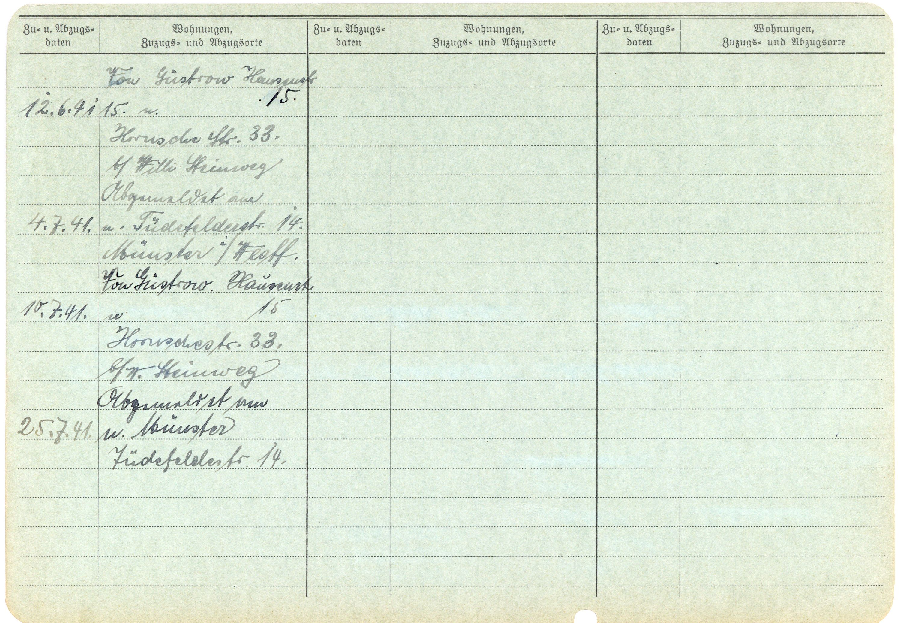 Zu- u. Abzugs-
daten
Wohnungen,
Zuzugs- und Abzugsorte
Zu- u. Abzugs-
daten
Wohnungen,
Zuzugs- und Abzugsorte
Zu- u. Abzugs-
daten
Wohnungen,
Zuzugs- und Abzugsorte
Von Güstrow
15.
12.6.41 15. n.
Hornsche Str. 33.
b/ Willi Steinweg
Abgemeldet am
4.7.41. n. Tüdefelderstr. 14.
Münster i/Westf.
Von Güstrow.
10.7.41. n 15
Hornschestr. 33.
b/W. Steinweg
Abgemeldet am
25.7.41. n. Münster
Jüdefelderstr 14.